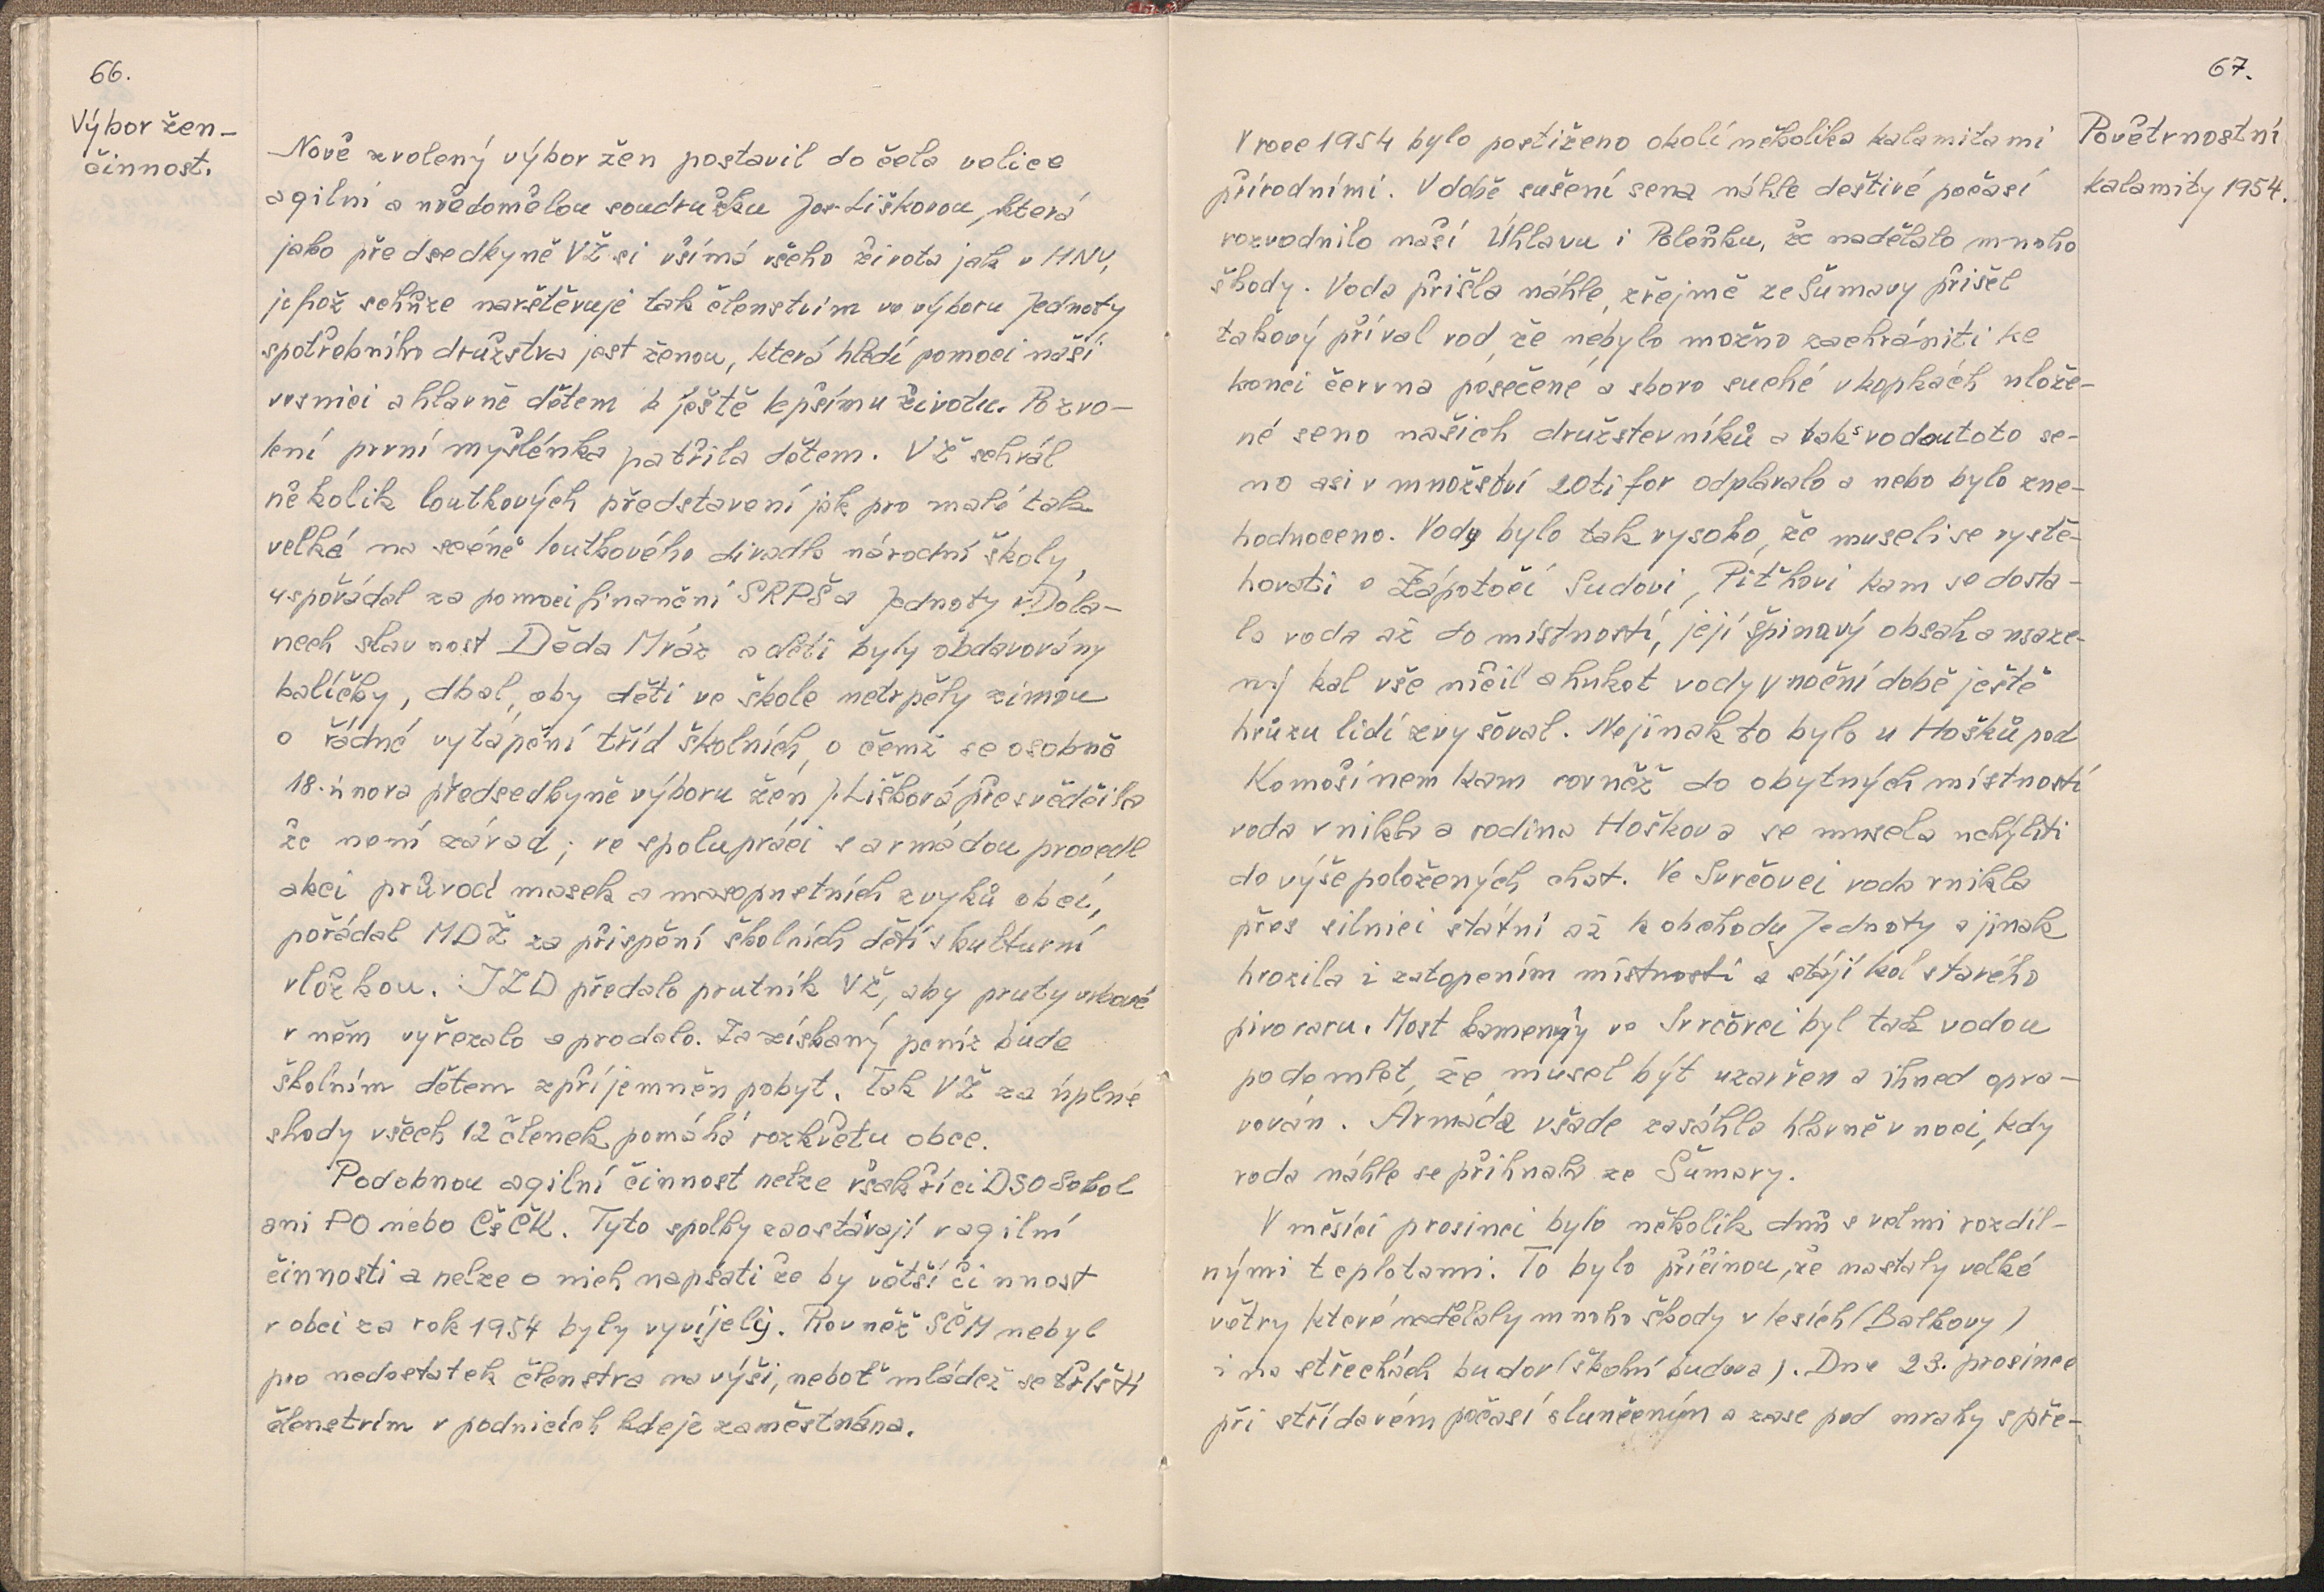 66.
Výbor žen-
činnost.
Nově zvolený výbor žen postavil do čela velice
agilní a uvědomělou soudružku Jos. Liškovou, která
jako předsedkyně VŽ si všímá všeho života jak v MNV,
jehož schůze navštěvuje tak členstvím ve výboru Jednoty
spotřebního družstva jest ženou, která hledí pomoci naší
vesnici a hlavně dětem k ještě lepšímu životu. Po zvo-
lení první myšlénka patřila dětem. VŽ sehrál
několik loutkových představení jak pro malé tak
velké na scéně loutkového divadla národní školy,
uspořádal za pomoci finanční SRPŠ a Jednoty v Dola-
nech slavnost Děda Mráz a děti byly obdarovány
balíčky, dbal, aby děti ve škole netrpěly zimou
o řádné vytápění tříd školních, o čemž se osobně
18. února předsedkyně výboru žen J. Lišková přesvědčila
že není závad; ve spolupráci s armádou provedl
akci průvod masek a masopustních zvyků obcí,
pořádal MDŽ za přispění školních dětí s kulturní
vložkou. JZD předalo prutník VŽ, aby pruty vrbové
v něm vyřezalo a prodalo. Za získaný peníz bude
školním dětem zpříjemněn pobyt. Tak VŽ za úplné
shody všech 12 členek pomáhá rozkvětu obce.
Podobnou agilní činnost nelze však říci DSO Sokol
ani PO nebo ČsČK. Tyto spolky zaostávají v agilní
činnosti a nelze o nich napsati že by větší činnost
v obci za rok 1954 byly vyvíjely. Rovněž SČM nebyl
pro nedostatek členstva na výši, neboť mládež se tříští
členstvím v podnicích kde je zaměstnána.
67.
Povětrnostní
kalamity 1954.
V roce 1954 bylo postiženo okolí několika kalamitami
přírodními. V době sušení sena náhle deštivé počasí
rozvodnilo naší Úhlavu i Poleňku, že nadělalo mnoho
škody. Voda přišla náhle, zřejmě ze Šumavy přišel
takový příval vod, že nebylo možno zachrániti ke
konci června posečené a skoro suché v kopkách ulože-
né seno našich družstevníků a tak s vodou toto se-
no asi v množství 20ti for odplavalo a nebo bylo zne-
hodnoceno. Vody bylo tak vysoko, že museli se vystě-
hovati v Zápotočí Sudovi, Pitřhovi kam se dosta-
la voda až do místností, její špinavý obsah a usaze-
ný kal vše ničil a hukot vody v noční době ještě
hrůzu lidí zvyšoval. Nejinak to bylo u Hošků pod
Komošínem kam rovněž do obytných místností
voda vnikla a rodina Hoškova se musela uchýliti
do výše položených chat. Ve Svrčovci voda vnikla
přes silnici státní až k obchodu Jednoty a jinak
hrozila i zatopením místností a stájí kol starého
pivovaru. Most kamenný ve Svrčovci byl tak vodou
podemlet, že musel být uzavřen a ihned opra-
vován. Armáda všade zasáhla hlavně v noci, kdy
voda náhle se přihnala ze Šumavy.
V měsíci prosinci bylo několik dnů s velmi rozdíl-
nými teplotami. To bylo příčinou, že nastaly velké
větry které nadělaly mnoho škody v lesích (Balkovy)
i na střechách budov (školní budova). Dne 23. prosince
při střídavém počasí slunečným a zase pod mraky s pře-